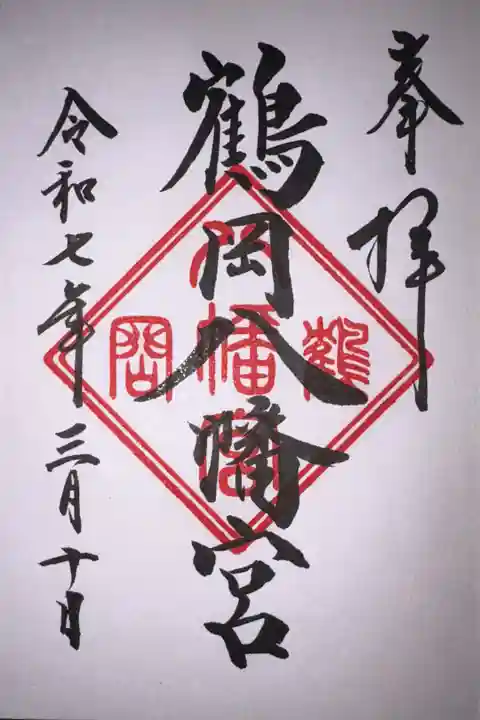 奉拝
鶴岡八幡宮
鶴
八幡宮
岡
令和七年三月十日